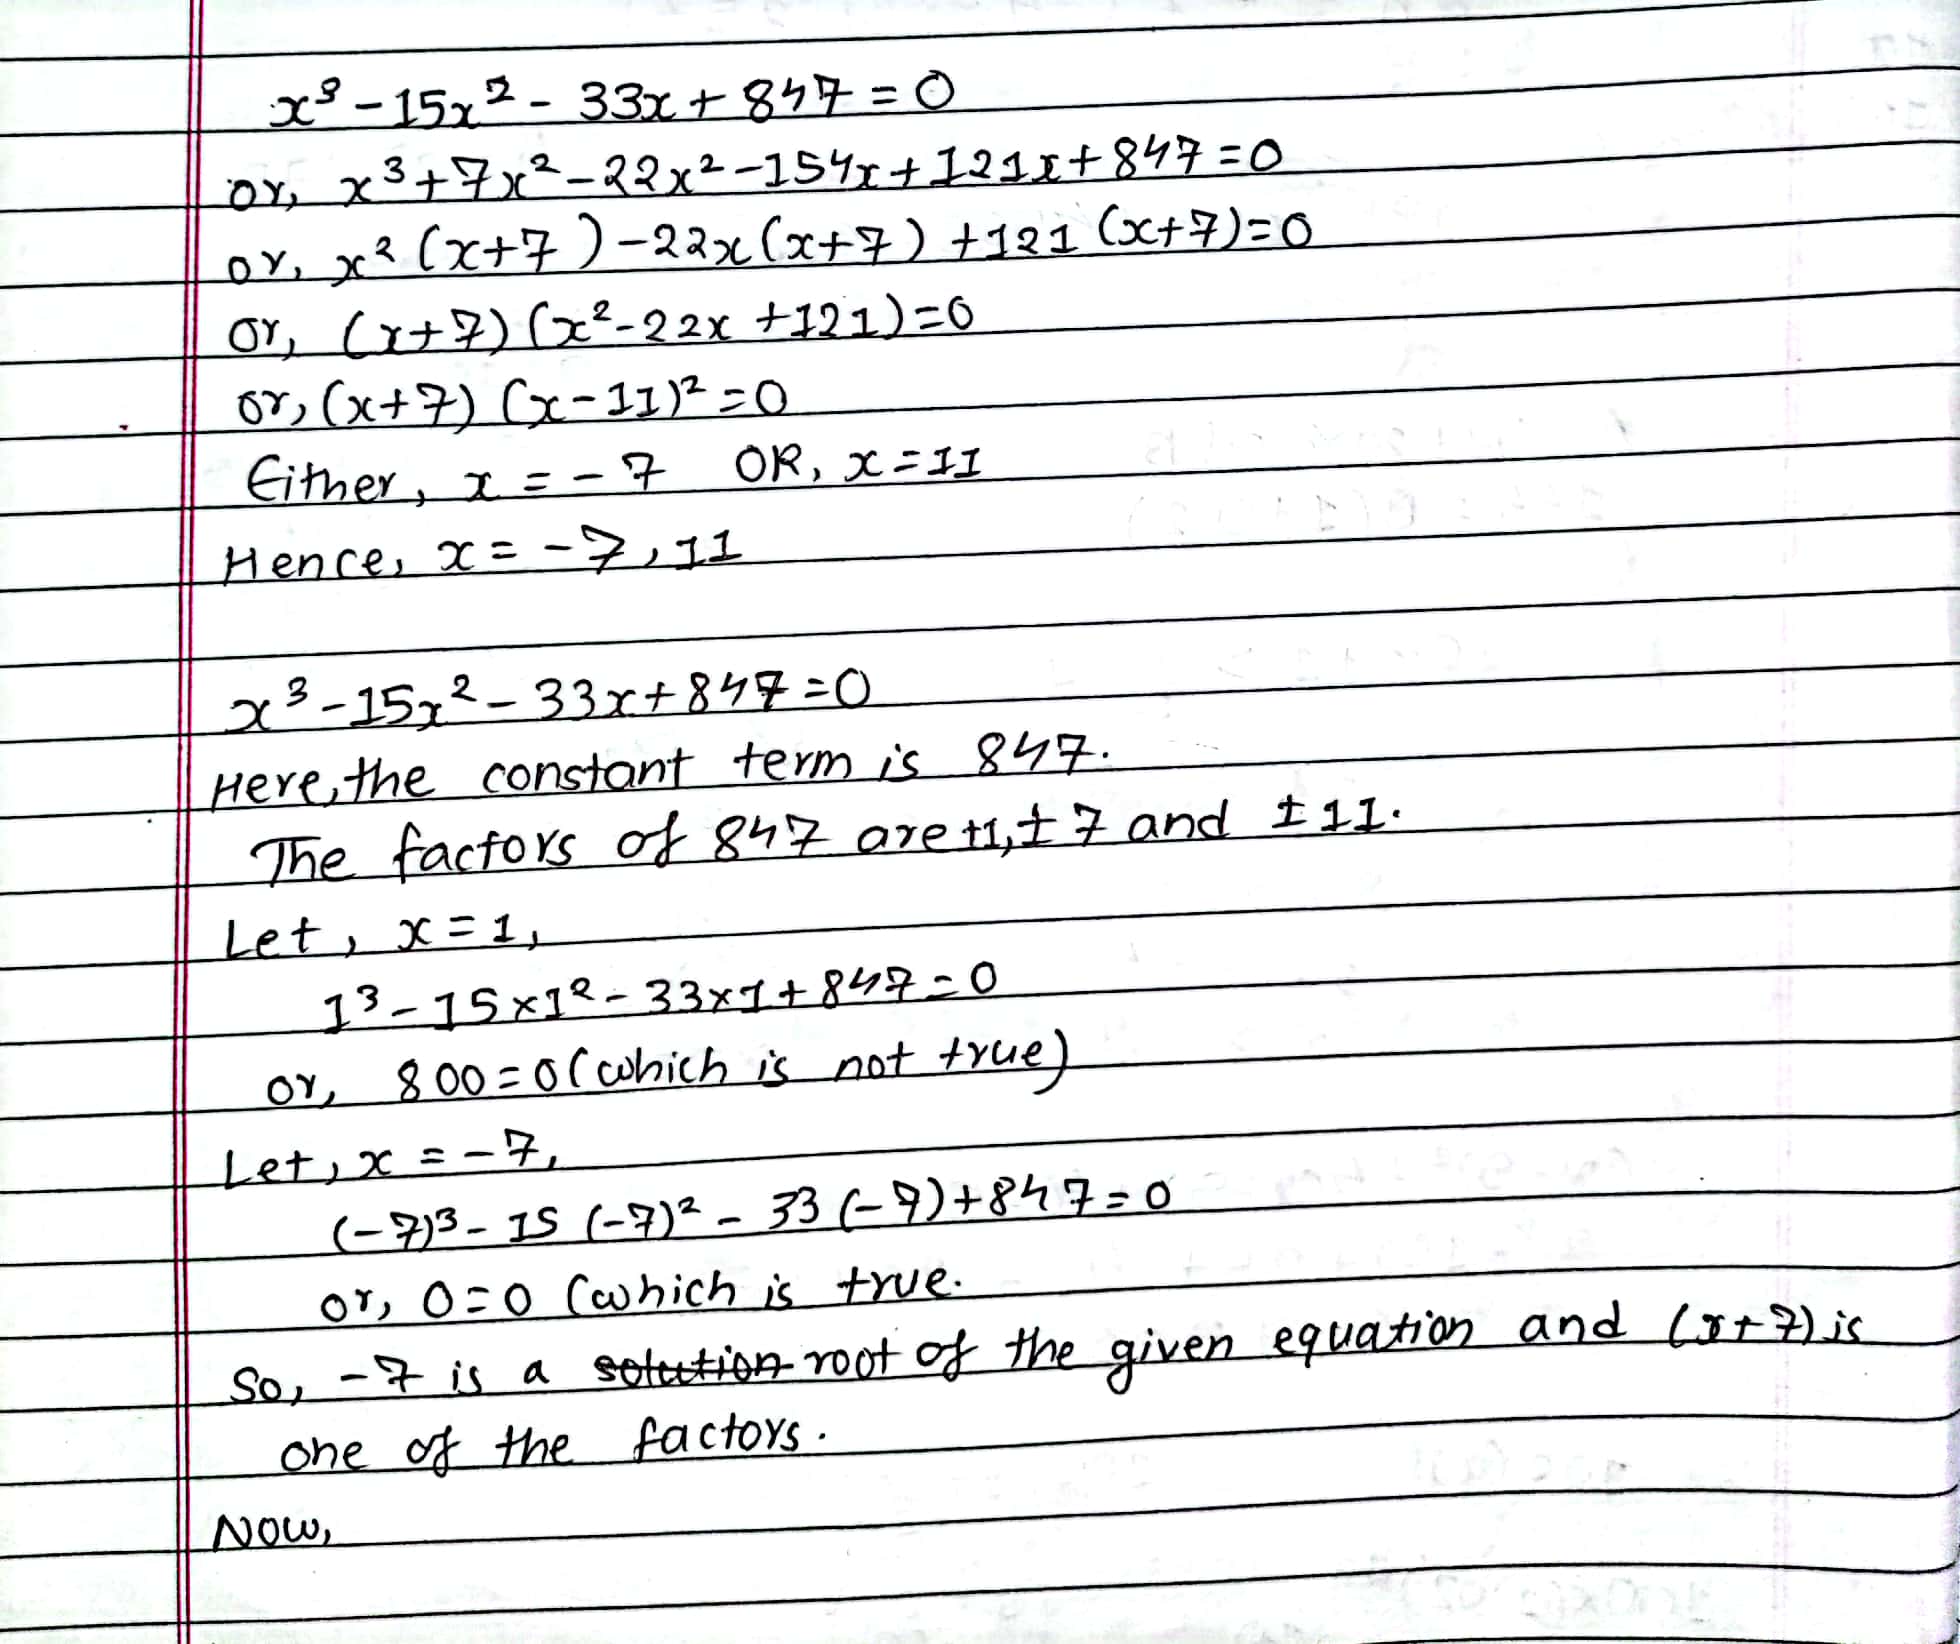 x³ - 15x² - 33x + 847 = 0
or, x³ + 7x² - 22x² - 154x + 121x + 847 = 0
or, x² (x+7) - 22x (x+7) + 121 (x+7) = 0
or, (x+7) (x² - 22x + 121) = 0
or, (x+7) (x-11)² = 0
Either, x = -7 OR, x = 11
Hence, x = -7, 11
x³ - 15x² - 33x + 847 = 0
Here, the constant term is 847.
The factors of 847 are ±1, ±7 and ±11.
Let, x = 1,
1³ - 15×1² - 33×1 + 847 = 0
or, 800 = 0 (which is not true)
Let, x = -7,
(-7)³ - 15 (-7)² - 33 (-7) + 847 = 0
or, 0 = 0 (which is true.
So, -7 is a solution root of the given equation and (x+7) is
one of the factors.
Now,